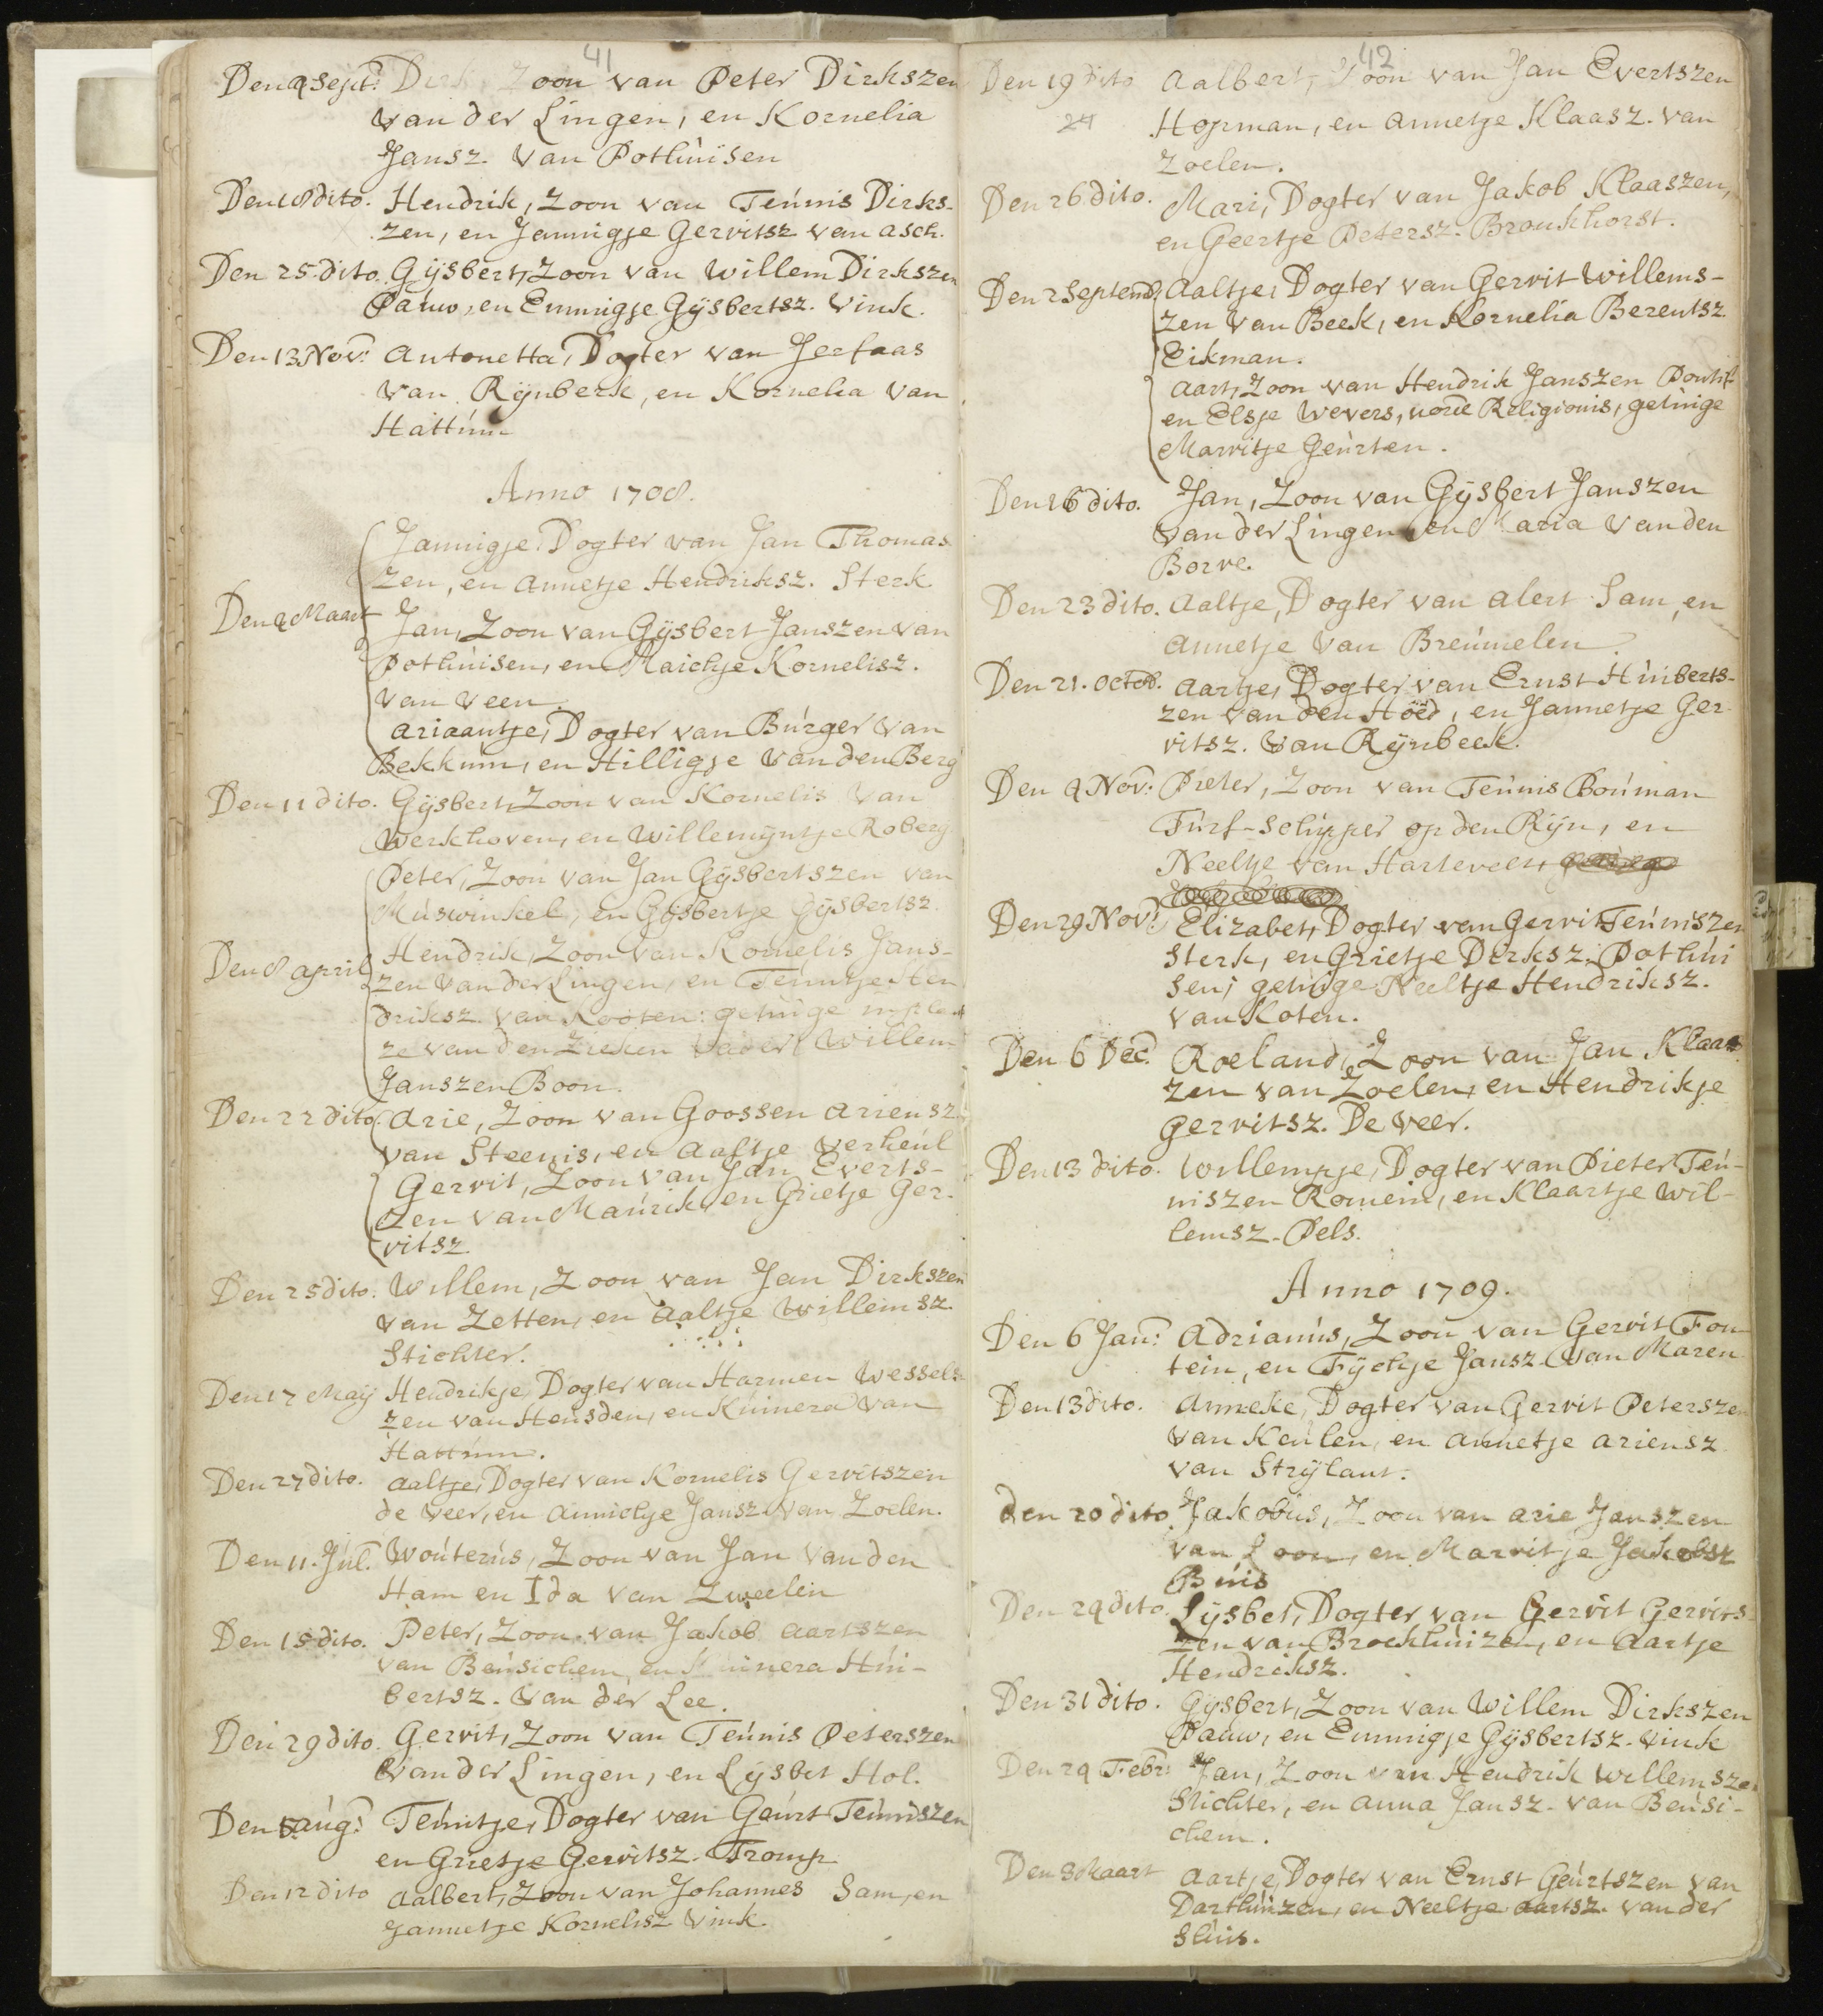 41
Den 4 Sept: Dirk, Zoon van Peter Dirkszen
van der Lingen, en Kornelia
Jansz. Van Pothuisen
Den 18 dito. Hendrik, Zoon van Teunis Dirks-
zen, en Jannigje Gerritsz van asch.
Den 25. dito. Gijsbert, Zoon van Willem Dirkszen
Pauw, en Emmigje Gijsbertsz. Vink.
Den 13 Nov: Antonetta, Dogter van Jerfaas
Van Rijnberk, en Kornelia Van
Hattum
Anno 1708.
Jannigje, Dogter van Jan Thomas
zen, en Annetje Hendriksz. Sterk
Den 4 Maart Jan, Zoon van Gijsbert Janszen van
Pothuisen, en Maichje Kornelisz.
van Veen.
Ariaantje, Dogter van Burger Van
Bekkum, en Hilligje Van den Berg
Den 11 dito. Gijsbert, Zoon van Kornelis Van
Werkhoven, en Willemijntje Roberg
Peter, Zoon van Jan Gijsbertszen van
Muswinkel, en Gijsbertje Gijsbertsz.
Den 8 april Hendrik, Zoon van Kornelis Jans-
zen Van der Lingen, en Teuntje Hen
driksz. van Kooten: getuige in plaat
ze van den Zieken Vader Willem
Janszen Boon.
Den 22 dito. Arie, Zoon van Goossen Ariensz.
van Steenis, en Aaltje Verheul
Gerrit, Zoon van Jan Everts-
zen van Maurik, en Grietje Ger-
ritsz.
Den 25 dito. Willem, Zoon van Jan Dirkszen
van Zetten, en Aaltje Willemsz.
Stichter.
Den 17 Maij Hendrikje, Dogter van Harmen Wessels-
zen van Heusden, en Kunera Van
Hattum.
Den 27 dito. Aaltje, Dogter van Kornelis Gerritszen
de Veer, en Annichje Jansz. Van Zoelen.
Den 11. Jul. Wouterus, Zoon van Jan Van den
Ham en Ida van Zweelen
Den 15 dito. Peter, Zoon van Jakob Aartszen
van Beusichem, en Kunera Hui-
bertsz. Van der Lee.
Den 29 dito. Gerrit, Zoon van Teunis Peterszen
Van der Lingen, en Lijsbet Hol.
Den 5 aug: Teuntje, Dogter van Geurt Teuniszen
en Grietje Gerritsz. Tromp
Den 12 dito Aalbert, Zoon van Johannes Sam, en
Jannetje Kornelisz Vink.
42
Den 19 dito Aalbert, Zoon van Jan Evertszen
24 Hopman, en Annetje Klaasz. van
Zoelen.
Den 26 dito. Mari, Dogter van Jakob Klaaszen,
en Geertje Petersz. Bronkhorst.
Den 2 Septemb. Aaltje, Dogter van Gerrit Willems-
zen Van Beek, en Kornelia Berentsz
Eikman.
Aart, Zoon van Hendrik Janszen Pontif.
en Elsje Wevers, Religionis, getuige
Marritje Geurten.
Den 16 dito. Jan, Zoon van Gijsbert Janszen
Van der Lingen en Maria Van den
Borre.
Den 23 dito. Aaltje, Dogter van Alert Sam, en
Annetje Van Breumelen.
Den 21. Octob. Aartje, Dogter van Ernst Huiberts-
zen van den Hoed, en Jannetje Ger-
ritsz. Van Rijnbeek.
Den 4 Nov: Pieter, Zoon van Teunis Bouman
Turf-schipper op den Rijn, en
Neeltje van Hartevelt,
Den 29. Nov: Elizabet, Dogter van Gerrit Teuniszen
Sterk, en Grietje Dirksz. Pothui
sen; getuige Neeltje Hendriksz.
van Koten.
Den 6 Dec. Roeland, Zoon van Jan Klaas
zen van Zoelen, en Hendrikje
Gerritsz. De Veer.
Den 13 dito. Willempje, Dogter van Pieter Teu-
niszen Romein, en Klaartje Wil-
lemsz. Pels.
Anno 1709.
Den 6 Jan: Adrianus, Zoon van Gerrit Fon-
tein, en Fijchje Jansz. Van Maren
Den 13 dito. Anneke, Dogter van Gerrit Peterszen
Van Keulen, en Annetje Ariensz
van Strijlant.
den 20 dito. Jakobus, Zoon van Arie Janszen
van Loon, en Marritje Jakobsz
Buis
Den 29 dito. Lijsbet, Dogter van Gerrit Gerrits-
zen van Broekhuizen, en Aartje
Hendriksz.
Den 31 dito. Gijsbert, Zoon van Willem Dirkszen
Pauw, en Emmigje Gijsbertsz. Vink
Den 24 Febr: Jan, Zoon van Hendrik Willemszen
Stichter, en Anna Jansz. van Beusi-
chem.
Den 3 Maart Aartje, Dogter van Ernst Geurtszen van
Darthuizen, en Neeltje Aartsz. van der
Sluis.